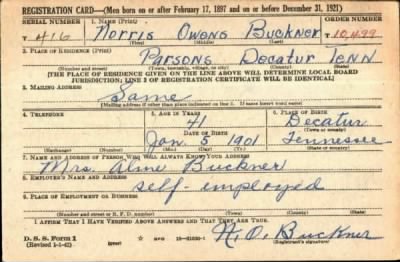 REGISTRATION CARD—(Men born on or after February 17, 1897 and on or before December 31, 1921)
SERIAL NUMBER 1. NAME (Print) ORDER NUMBER
T 416 Norris Owens Buckner 10,499
(First) (Middle) (Last)
2. PLACE OF RESIDENCE (Print)
Parsons Decatur Tenn
(Number and street) (Town, township, village, or city) (County) (State)
[THE PLACE OF RESIDENCE GIVEN ON THE LINE ABOVE WILL DETERMINE LOCAL BOARD
JURISDICTION; LINE 2 OF REGISTRATION CERTIFICATE WILL BE IDENTICAL]
3. MAILING ADDRESS
Same
[Mailing address if other than place indicated on line 2. If same insert word same]
4. TELEPHONE 5. AGE IN YEARS 6. PLACE OF BIRTH
41 Decatur
DATE OF BIRTH (Town or county)
Jan. 5 1901 Tennessee
(Exchange) (Number) (Mo.) (Day) (Yr.) (State or country)
7. NAME AND ADDRESS OF PERSON WHO WILL ALWAYS KNOW YOUR ADDRESS
Mrs. Buckner
8. EMPLOYER'S NAME AND ADDRESS
self-employed
9. PLACE OF EMPLOYMENT OR BUSINESS
(Number and street or R. F. D. number) (Town) (County) (State)
I AFFIRM THAT I HAVE VERIFIED ABOVE ANSWERS AND THAT THEY ARE TRUE.
D. S. S. Form 1
(Revised 1-1-42) (over) N. O. Buckner
(Registrant's signature)